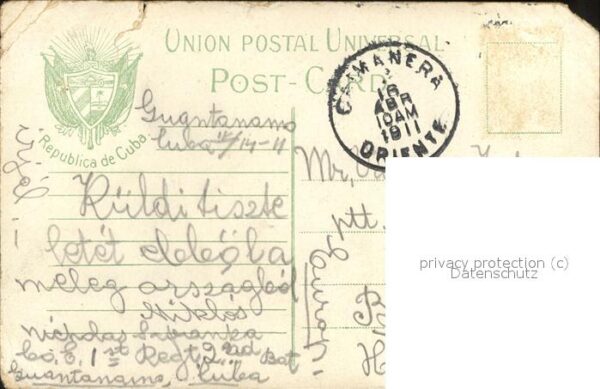 UNION POSTAL UNIVERSAL
POST-CARD
Republica de Cuba.
CAIMANERA
16
ABR
10AM
1911
ORIENTE
Guantanamo
Cuba IV/14-11
Küldi tiszte
letét ebbőla
meleg országból
Miklós
Nicholas
Co. E. 1st Regt, 2nd Bat
Guantanamo, Cuba
Mr,
ptt.
Europe
privacy protection (c)
Datenschutz